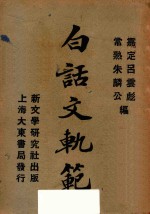 鑑定呂雲彪
常熟朱麟公編
白話文軌範
新文學研究社出版
上海大東書局發行